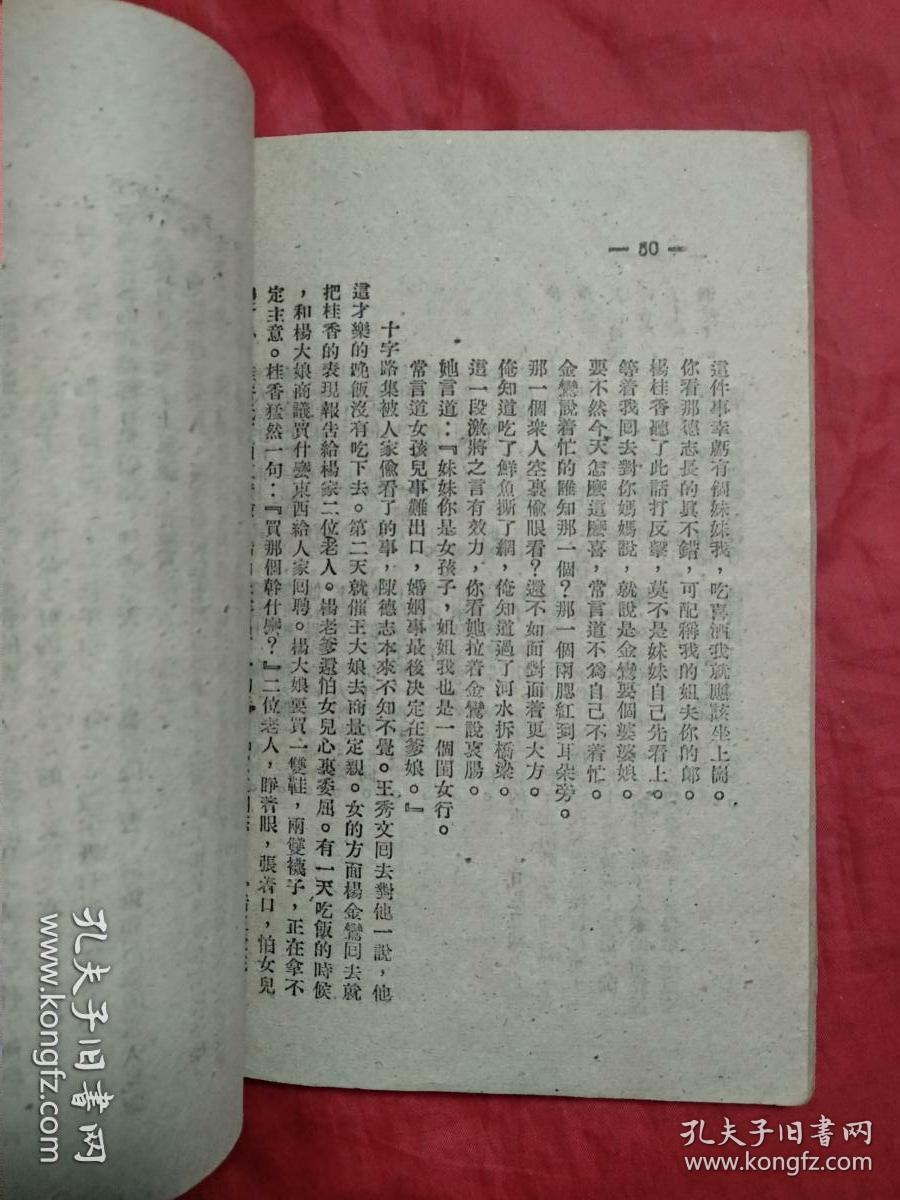 — 50 —
這件事幸虧有個妹妹我，吃喜酒我就應該坐上崗。
你看那德志長的真不錯，可配稱我的姐夫你的郎。
楊桂香聽了此話打反擊，莫不是妹妹自己先看上。
等着我回去對你媽媽說，就說是金鸞要個婆婆娘。
要不然今天怎麼這麼喜，常言道不爲自己不着忙。
金鸞說着忙的誰知那一個？那一個兩腮紅到耳朵旁。
那一個衆人空裏偷眼看？還不如面對面着更大方。
俺知道吃了鮮魚撕了網，俺知道過了河水拆橋樑。
這一段激將之言有效力，你看她拉着金鸞說衷腸。
她言道：『妹妹你是女孩子，姐姐我也是一個閨女行。
常言道女孩兒事難出口，婚姻事最後決定在爹娘。』
十字路集被人家偷看了的事，陳德志本來不知不覺。王秀文囘去對他一說，他
這才樂的晚飯沒有吃下去。第二天就催王大娘去商量定親。女的方面楊金鸞囘去就
把桂香的表現報告給楊家二位老人。楊老爹還怕女兒心裏委屈。有一天吃飯的時候
，和楊大娘商議買什麼東西給人家回聘。楊大娘要買一雙鞋，兩雙襪子，正在拿不
定主意。桂香猛然一句：『買那個幹什麼？』二位老人，睁著眼，張著口，怕女兒
孔夫子旧书网
www.kongfz.com
孔夫子旧书网
www.kongfz.com